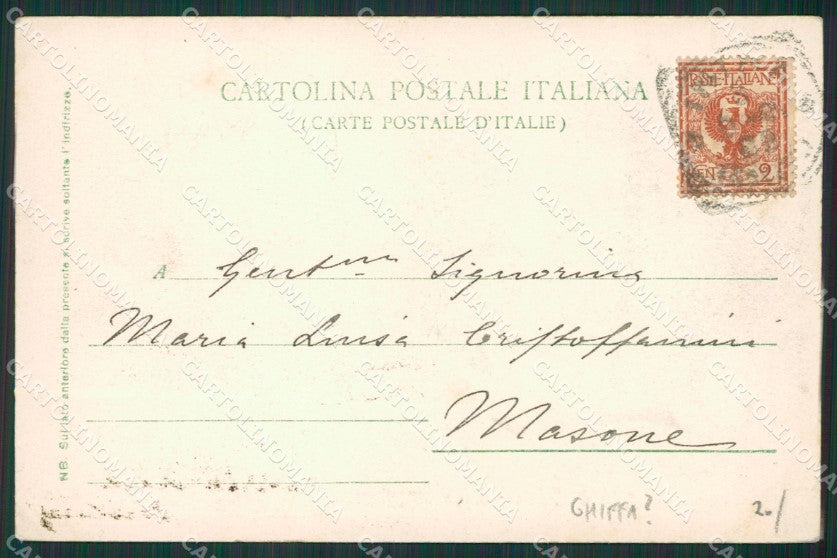 CARTOLINA POSTALE ITALIANA
(CARTE POSTALE D'ITALIE)
POSTE·ITALIANE
CEN 2
NB Sul lato anteriore della presente si scrive soltanto l'indirizzo.
A Gentma Signorina
Maria Luisa Cristoffanini
Masone
GHIFFA? 20/
CARTOLINOMANIA